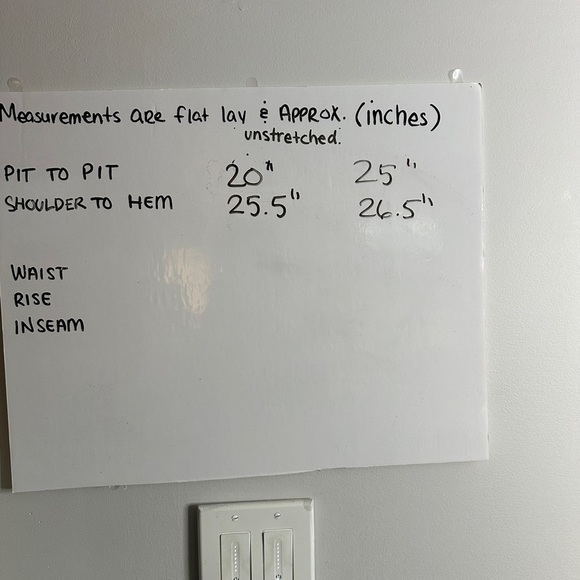 Measurements are flat lay & APPROX. (inches)
unstretched.
PIT TO PIT 20" 25"
SHOULDER TO HEM 25.5" 26.5"
WAIST
RISE
INSEAM